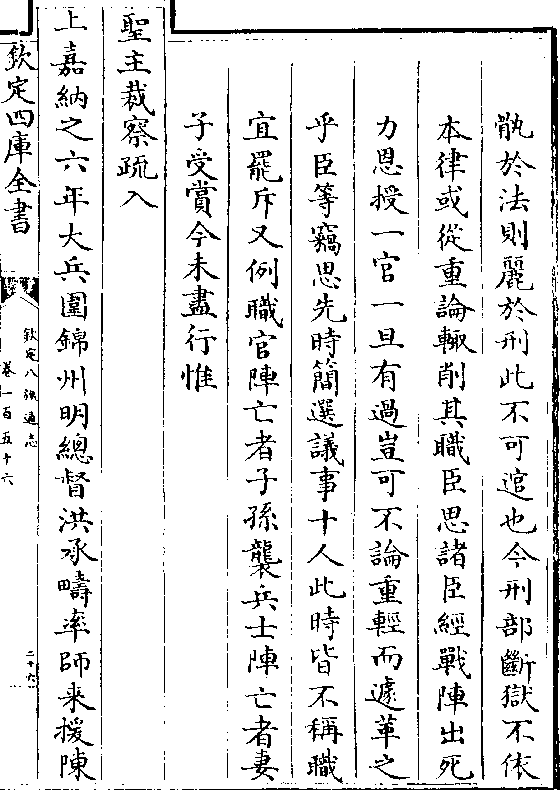 骫於法則麗於刑此不可逭也今刑部斷獄不依
本律或從重論輙削其職臣思諸臣經戰陣出死
力恩授一官一旦有過豈可不論重輕而遽革之
乎臣等竊思先時簡選議事十人此時皆不稱職
宜罷斥又例職官陣亡者子孫襲兵士陣亡者妻
子受賞今未盡行惟
聖主裁察疏入
上嘉納之六年大兵圍錦州明總督洪承疇率師来援陳
欽定四庫全書
欽定八旗通志
卷一百五十六
二十六